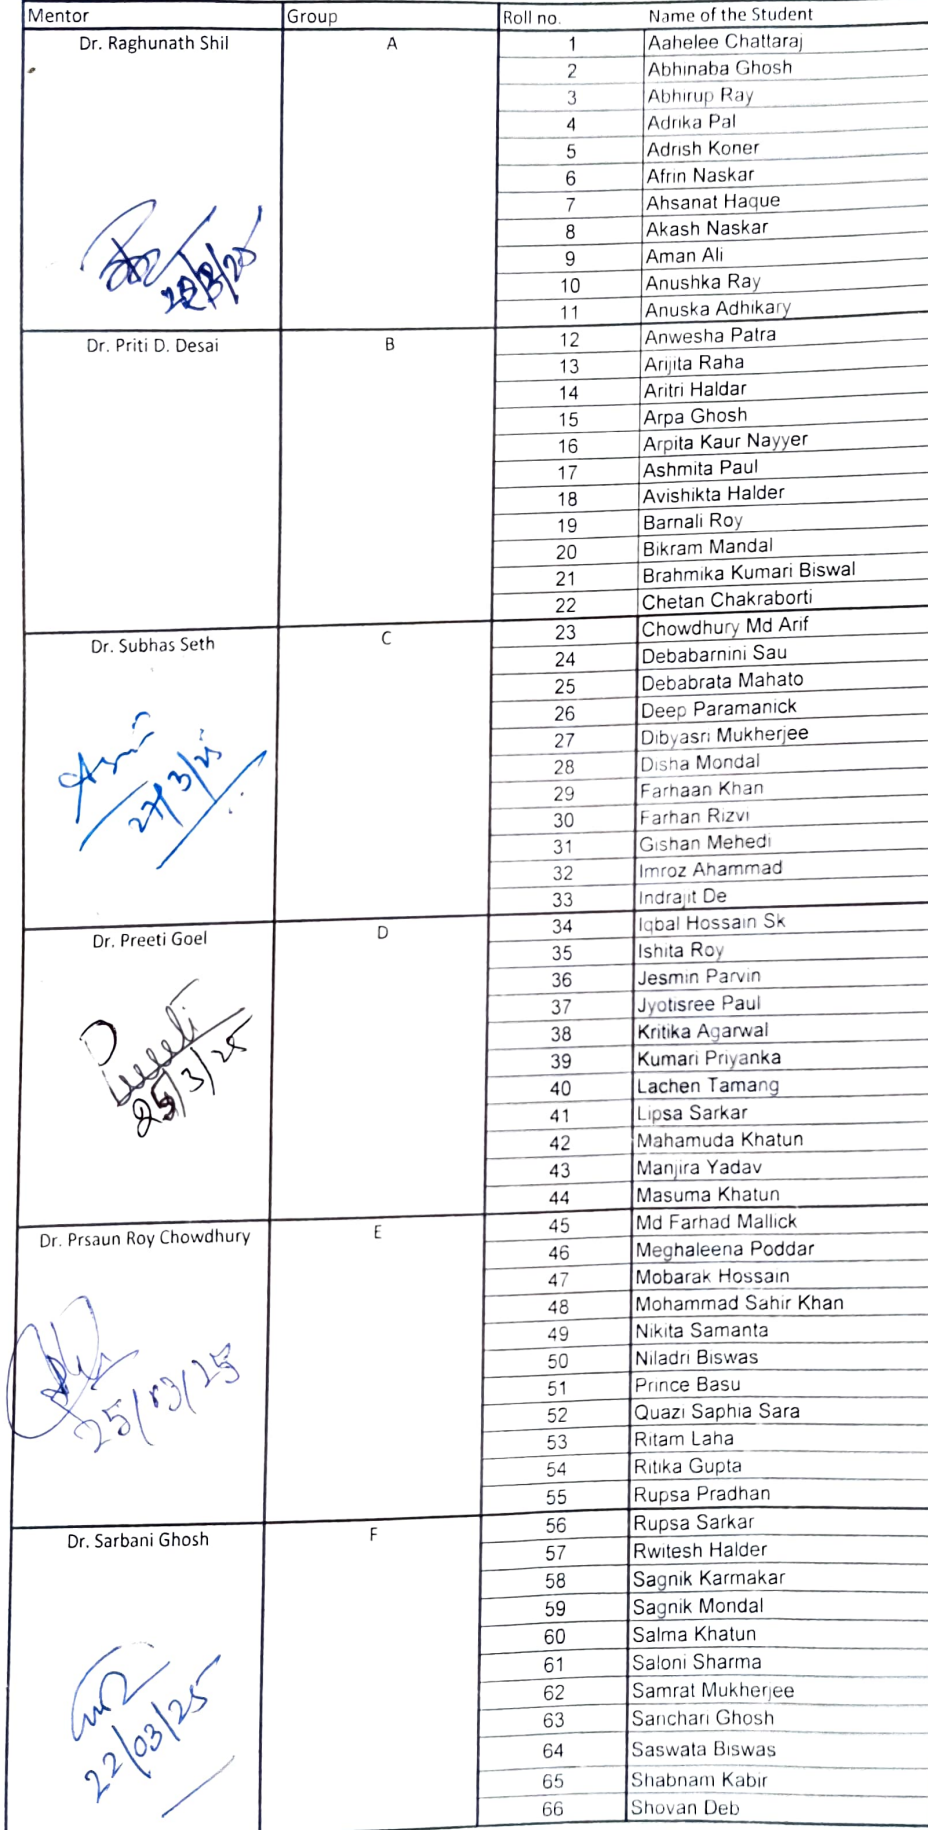 Mentor Group Roll no. Name of the Student
Dr. Raghunath Shil A 1 Aahelee Chattaraj
2 Abhinaba Ghosh
3 Abhirup Ray
4 Adrika Pal
5 Adrish Koner
6 Afrin Naskar
7 Ahsanat Haque
8 Akash Naskar
9 Aman Ali
10 Anushka Ray
11 Anuska Adhikary
Dr. Priti D. Desai B 12 Anwesha Patra
13 Arijita Raha
14 Aritri Haldar
15 Arpa Ghosh
16 Arpita Kaur Nayyer
17 Ashmita Paul
18 Avishikta Halder
19 Barnali Roy
20 Bikram Mandal
21 Brahmika Kumari Biswal
22 Chetan Chakraborti
Dr. Subhas Seth C 23 Chowdhury Md Arif
24 Debabarnini Sau
25 Debabrata Mahato
26 Deep Paramanick
27 Dibyasri Mukherjee
28 Disha Mondal
27/3/25 29 Farhaan Khan
30 Farhan Rizvi
31 Gishan Mehedi
32 Imroz Ahammad
33 Indrajit De
Dr. Preeti Goel D 34 Iqbal Hossain Sk
35 Ishita Roy
36 Jesmin Parvin
37 Jyotisree Paul
38 Kritika Agarwal
39 Kumari Priyanka
25/3/25 40 Lachen Tamang
41 Lipsa Sarkar
42 Mahamuda Khatun
43 Manjira Yadav
44 Masuma Khatun
Dr. Prsaun Roy Chowdhury E 45 Md Farhad Mallick
46 Meghaleena Poddar
47 Mobarak Hossain
48 Mohammad Sahir Khan
49 Nikita Samanta
50 Niladri Biswas
25/03/25 51 Prince Basu
52 Quazi Saphia Sara
53 Ritam Laha
54 Ritika Gupta
55 Rupsa Pradhan
Dr. Sarbani Ghosh F 56 Rupsa Sarkar
57 Rwitesh Halder
58 Sagnik Karmakar
59 Sagnik Mondal
60 Salma Khatun
61 Saloni Sharma
62 Samrat Mukherjee
22/03/25 63 Sanchari Ghosh
64 Saswata Biswas
65 Shabnam Kabir
66 Shovan Deb